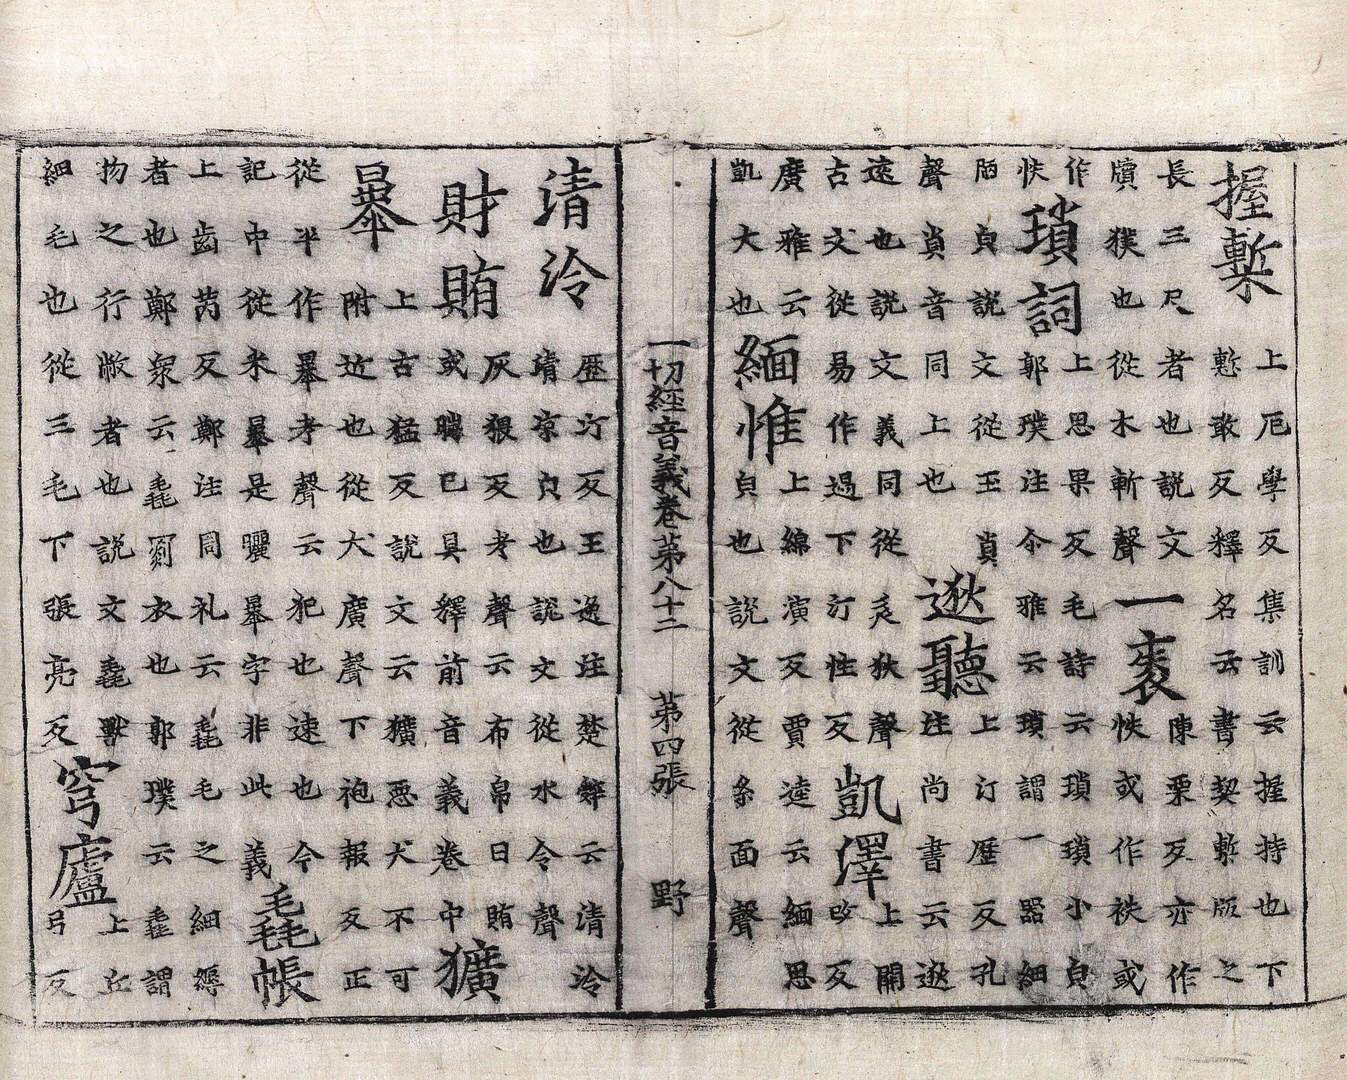 握槧
上厄學反集訓云握持也下
慙敢反釋名云書契槧版之
長三尺者也說文
牘獛也從木斬聲
一袠
陳栗反亦作
帙或作袟或
作
帙
瑣詞
上思果反毛詩云瑣瑣小皃
郭璞注尒雅云瑣謂一器細
陋皃說文從玉𧴪
聲𧴪音同上也
逖聽
上汀歷反孔
注尚書云逖
遠也說文義同從辵狄聲
古文從易作逷下汀性反
凱澤
上開
改反
廣雅云
凱大也
緬惟
上綿演反賈逵云緬思
皃也說文從糸面聲
一切經音義卷苐八十二 苐四張 野
清泠
歷汀反王逸注楚辭云清泠
清京皃也說文從水令聲
財賄
灰猥反考聲云布帛曰賄
或已具釋前音義卷中
獷
㬥
上古猛反說文云獷惡犬不可
附近也從犬廣聲下袍報反正
從半作㬥考聲云犯也速也今
記中從米暴是曬㬥字非此義
毳帳
上齒芮反鄭注周礼云毳毛之細縟
者也鄭衆云毳罽衣也郭璞云毳謂
物之行敝者也說文毳獸
細毛也從三毛下張亮反
穹廬
上丘
弓反